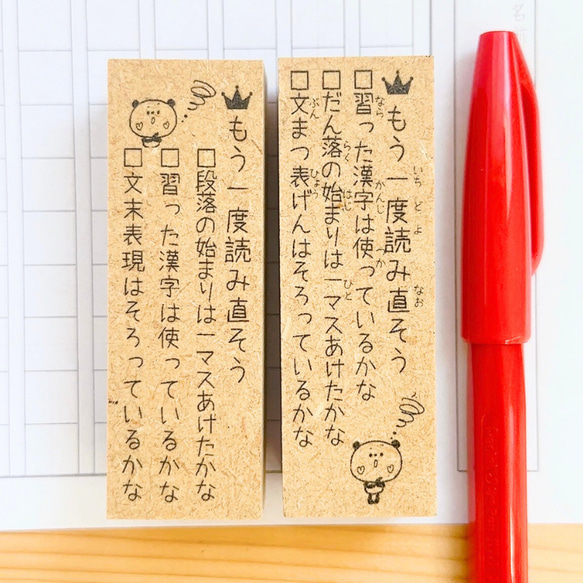 もう一度読み直そう
いち ど よ なお
□習った漢字は使っているかな
なら かんじ つか
□だん落の始まりは一マスあけたかな
らく はじ ひと
□文まつ表げんはそろっているかな
ぶん ひょう
もう一度読み直そう
□段落の始まりは一マスあけたかな
□習った漢字は使っているかな
□文末表現はそろっているかな